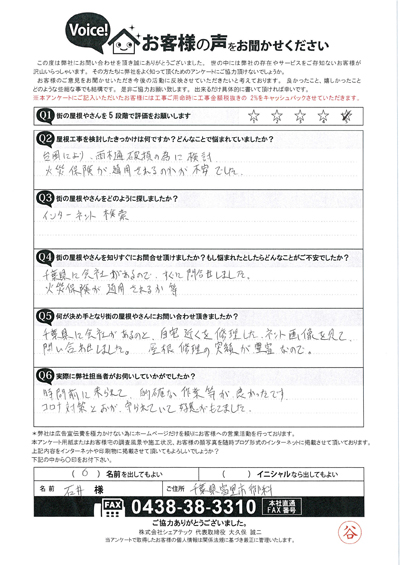 Voice!
お客様の声をお聞かせください
この度は弊社にお問い合わせを頂き誠にありがとうございました。世の中には弊社の存在やサービスをご存知ないお客様が
沢山いらっしゃいます。その方たちに弊社をよく知って頂くためのアンケートにご協力頂けないでしょうか。
お客様のご意見をお聞かせいただき今後の活動に反映させていただきたいと考えております。良かったこと、嬉しかったこと
どのような些細な事でも結構です。是非ご協力お願い致します。出来るだけ具体的に書いて頂ければ幸いです。
※本アンケートにご記入いただいたお客様には工事ご用命時に工事金額税抜きの 2%をキャッシュバックさせていただきます。
Q1 街の屋根やさんを5段階で評価をお願いします ☆ ☆ ☆ ☆ ☆
Q2 屋根工事を検討したきっかけは何ですか？どんなことで悩まれていましたか？
台風により、雨樋破損の為に検討
火災保険が適用されるのかが不安でした。
Q3 街の屋根やさんをどのように探しましたか？
インターネット検索
Q4 街の屋根やさんを知りすぐにお問合せ頂けましたか？もし悩まれたとしたらどんなことがご不安でしたか？
千葉県に会社があるので、すぐに問合せしました。
火災保険が適用されるか等
Q5 何が決め手となり街の屋根やさんにお問い合わせ頂けましたか？
千葉県に会社があるのと、自宅近くを修理した、ネット画像を見て、
問い合わせしました。屋根修理の実績が豊富なので。
Q6 実際に弊社担当者がお伺いしていかがでしたか？
時間前に来られて、的確な作業等が良かったです。
コロナ対策とおが、守られていて好感がもてました。
＊弊社は広告宣伝費を極力かけない為にホームページだけを頼りにお客様への営業活動を行っております。
本アンケート用紙またはお客様宅での調査風景や施工状況、お客様の顔写真を随時ブログ形式のインターネットに掲載させて頂いております。
上記内容をインターネットや印刷物に掲載させて頂いてもよろしいでしょうか？
下記の中から〇印をお付け下さい。
（ 〇 ） 名前を出してもよい （ ） イニシャルなら出してもよい
名前 石井 様 ご住所 千葉県富里市御料
FAX 0438-38-3310 本社直通 FAX番号
ご協力ありがとうございました。
株式会社シェアテック 代表取締役 大久保 誠二
当アンケートで取得したお客様の個人情報は関係法規に基づき厳正に管理いたします。
谷